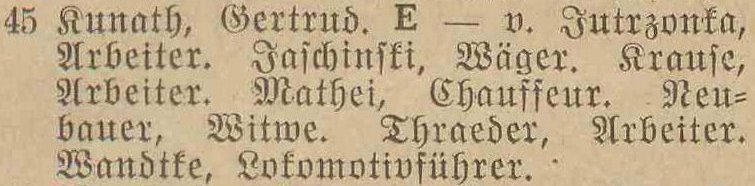 45 Kunath, Gertrud. E — v. Jutrzonka,
Arbeiter. Jaschinski, Wäger. Krause,
Arbeiter. Mathei, Chauffeur. Neu-
bauer, Witwe. Thraeder, Arbeiter.
Wandtke, Lokomotivführer.